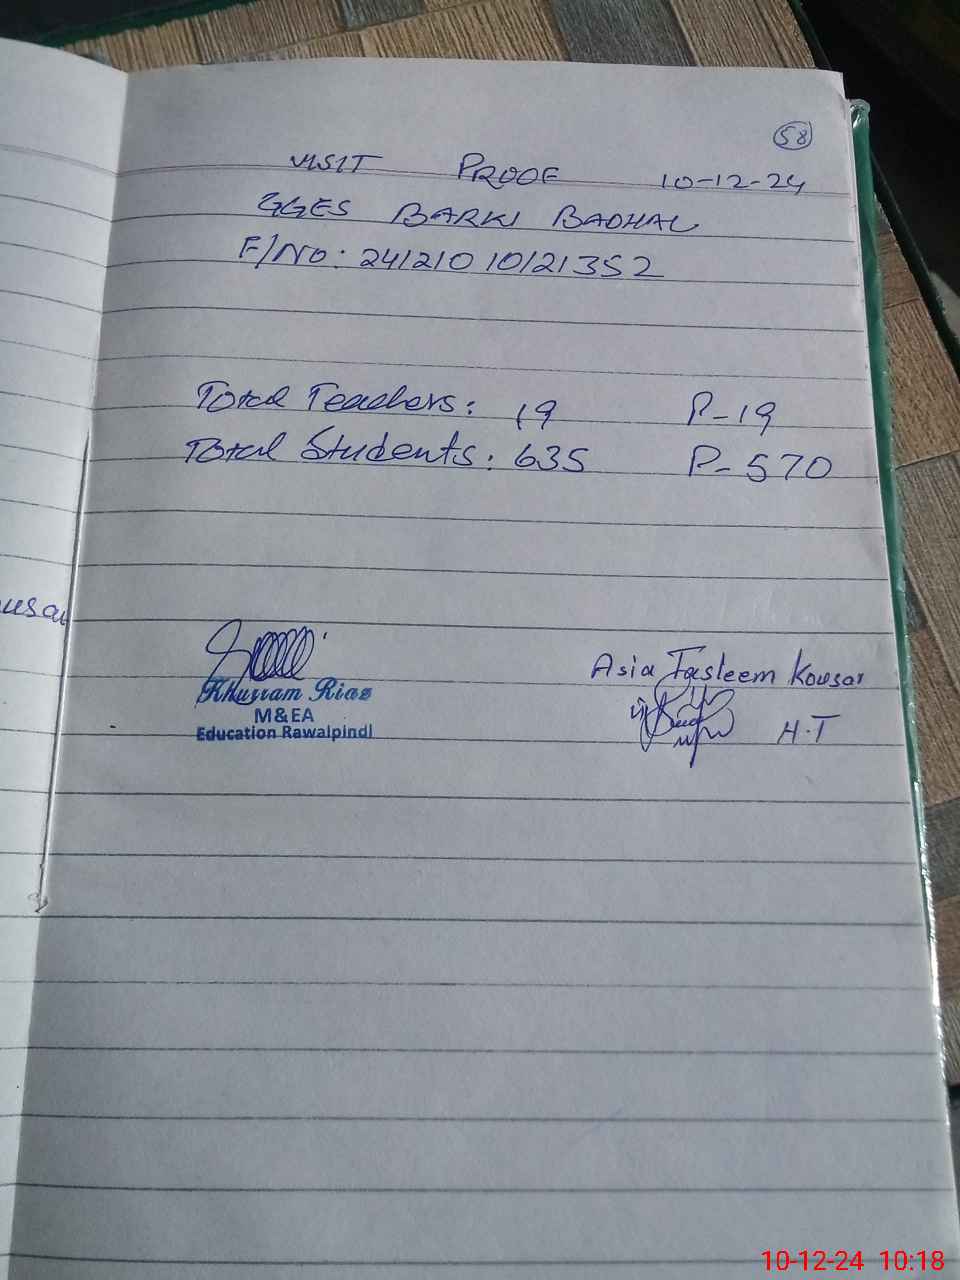 58
VISIT PROOF 10-12-24
GGES BARKI BADHAL
F/No: 241210 10121352
Total Teachers: 19 P-19
Total Students: 635 P-570
usar
Khurram Riaz
M&EA
Education Rawalpindi
Asia Tasleem Kousar
H.T
10-12-24 10:18